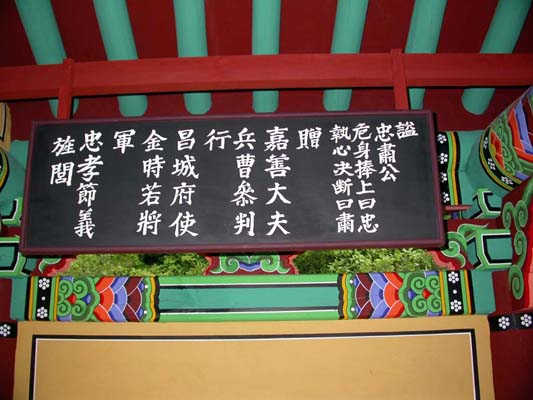 諡
忠肅公
危身捧上曰忠
執心決斷曰肅
贈
嘉善大夫
兵曹叅判
行
昌城府使
金時若將
軍
忠孝節義
旌閭